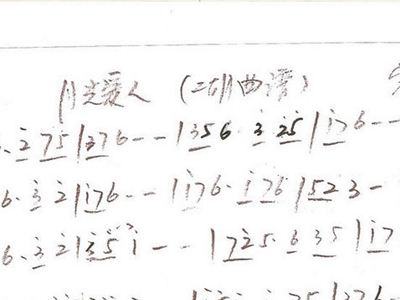 月光爱人 (二胡曲谱)
6. 2 7 5 | 3 7 6 - - | 3 5 6. 3 2 5 | i 7 6 - -
6. 3 2 | i 7 6 - - | i i 7 6. i 7 6 | 5 2 3 -
6. 3 2 | 3 5 i - - | 7 2 5. 6 3 5 | i 7